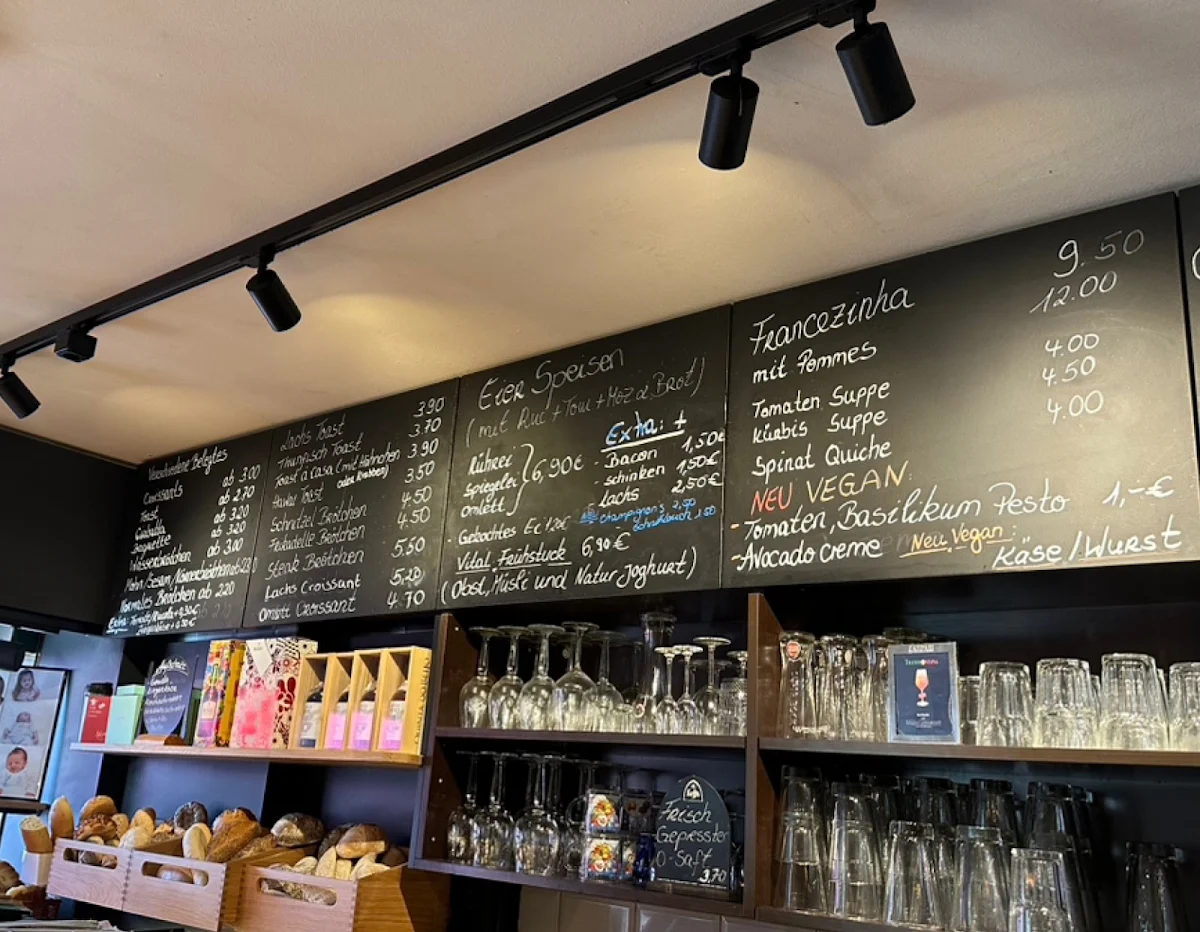 Verschiedene Belegtes
Croissants ab 3.00
Toast ab 2.70
Ciabatta ab 3.20
Baguette ab 3.20
ab 3.00
Normales Brötchen ab 2.20
Lachs Toast 3.90
Thunfisch Toast 3.70
Toast a Casa (mit Hähnchen 3.90
oder Krabben)
Hawai Toast 3.50
Schnitzel Brötchen 4.50
Frikadelle Brötchen 4.50
Steak Brötchen 5.50
Lachs Croissant 5.20
Omlett Croissant 4.70
Eier Speisen
(mit Ruc + Tom + Moz & Brot)
Rührei
Spiegelei 6,90€
Omlett
Extra: +
- Bacon 1,50€
- schinken 1,50€
- Lachs 2,50€
champignons 2,50
1,50
- Gekochtes Ei 1.20€
Vital Frühstück 6,90€
(Obst, Müsli und Natur Joghurt)
Francezinha 9.50
mit Pommes 12.00
Tomaten Suppe 4.00
Kürbis Suppe 4.50
Spinat Quiche 4.00
NEU VEGAN:
- Tomaten, Basilikum Pesto 1,-€
- Avocado creme Neu Vegan:
Käse / Wurst
Frisch
Gepresster
O-Saft
3,70